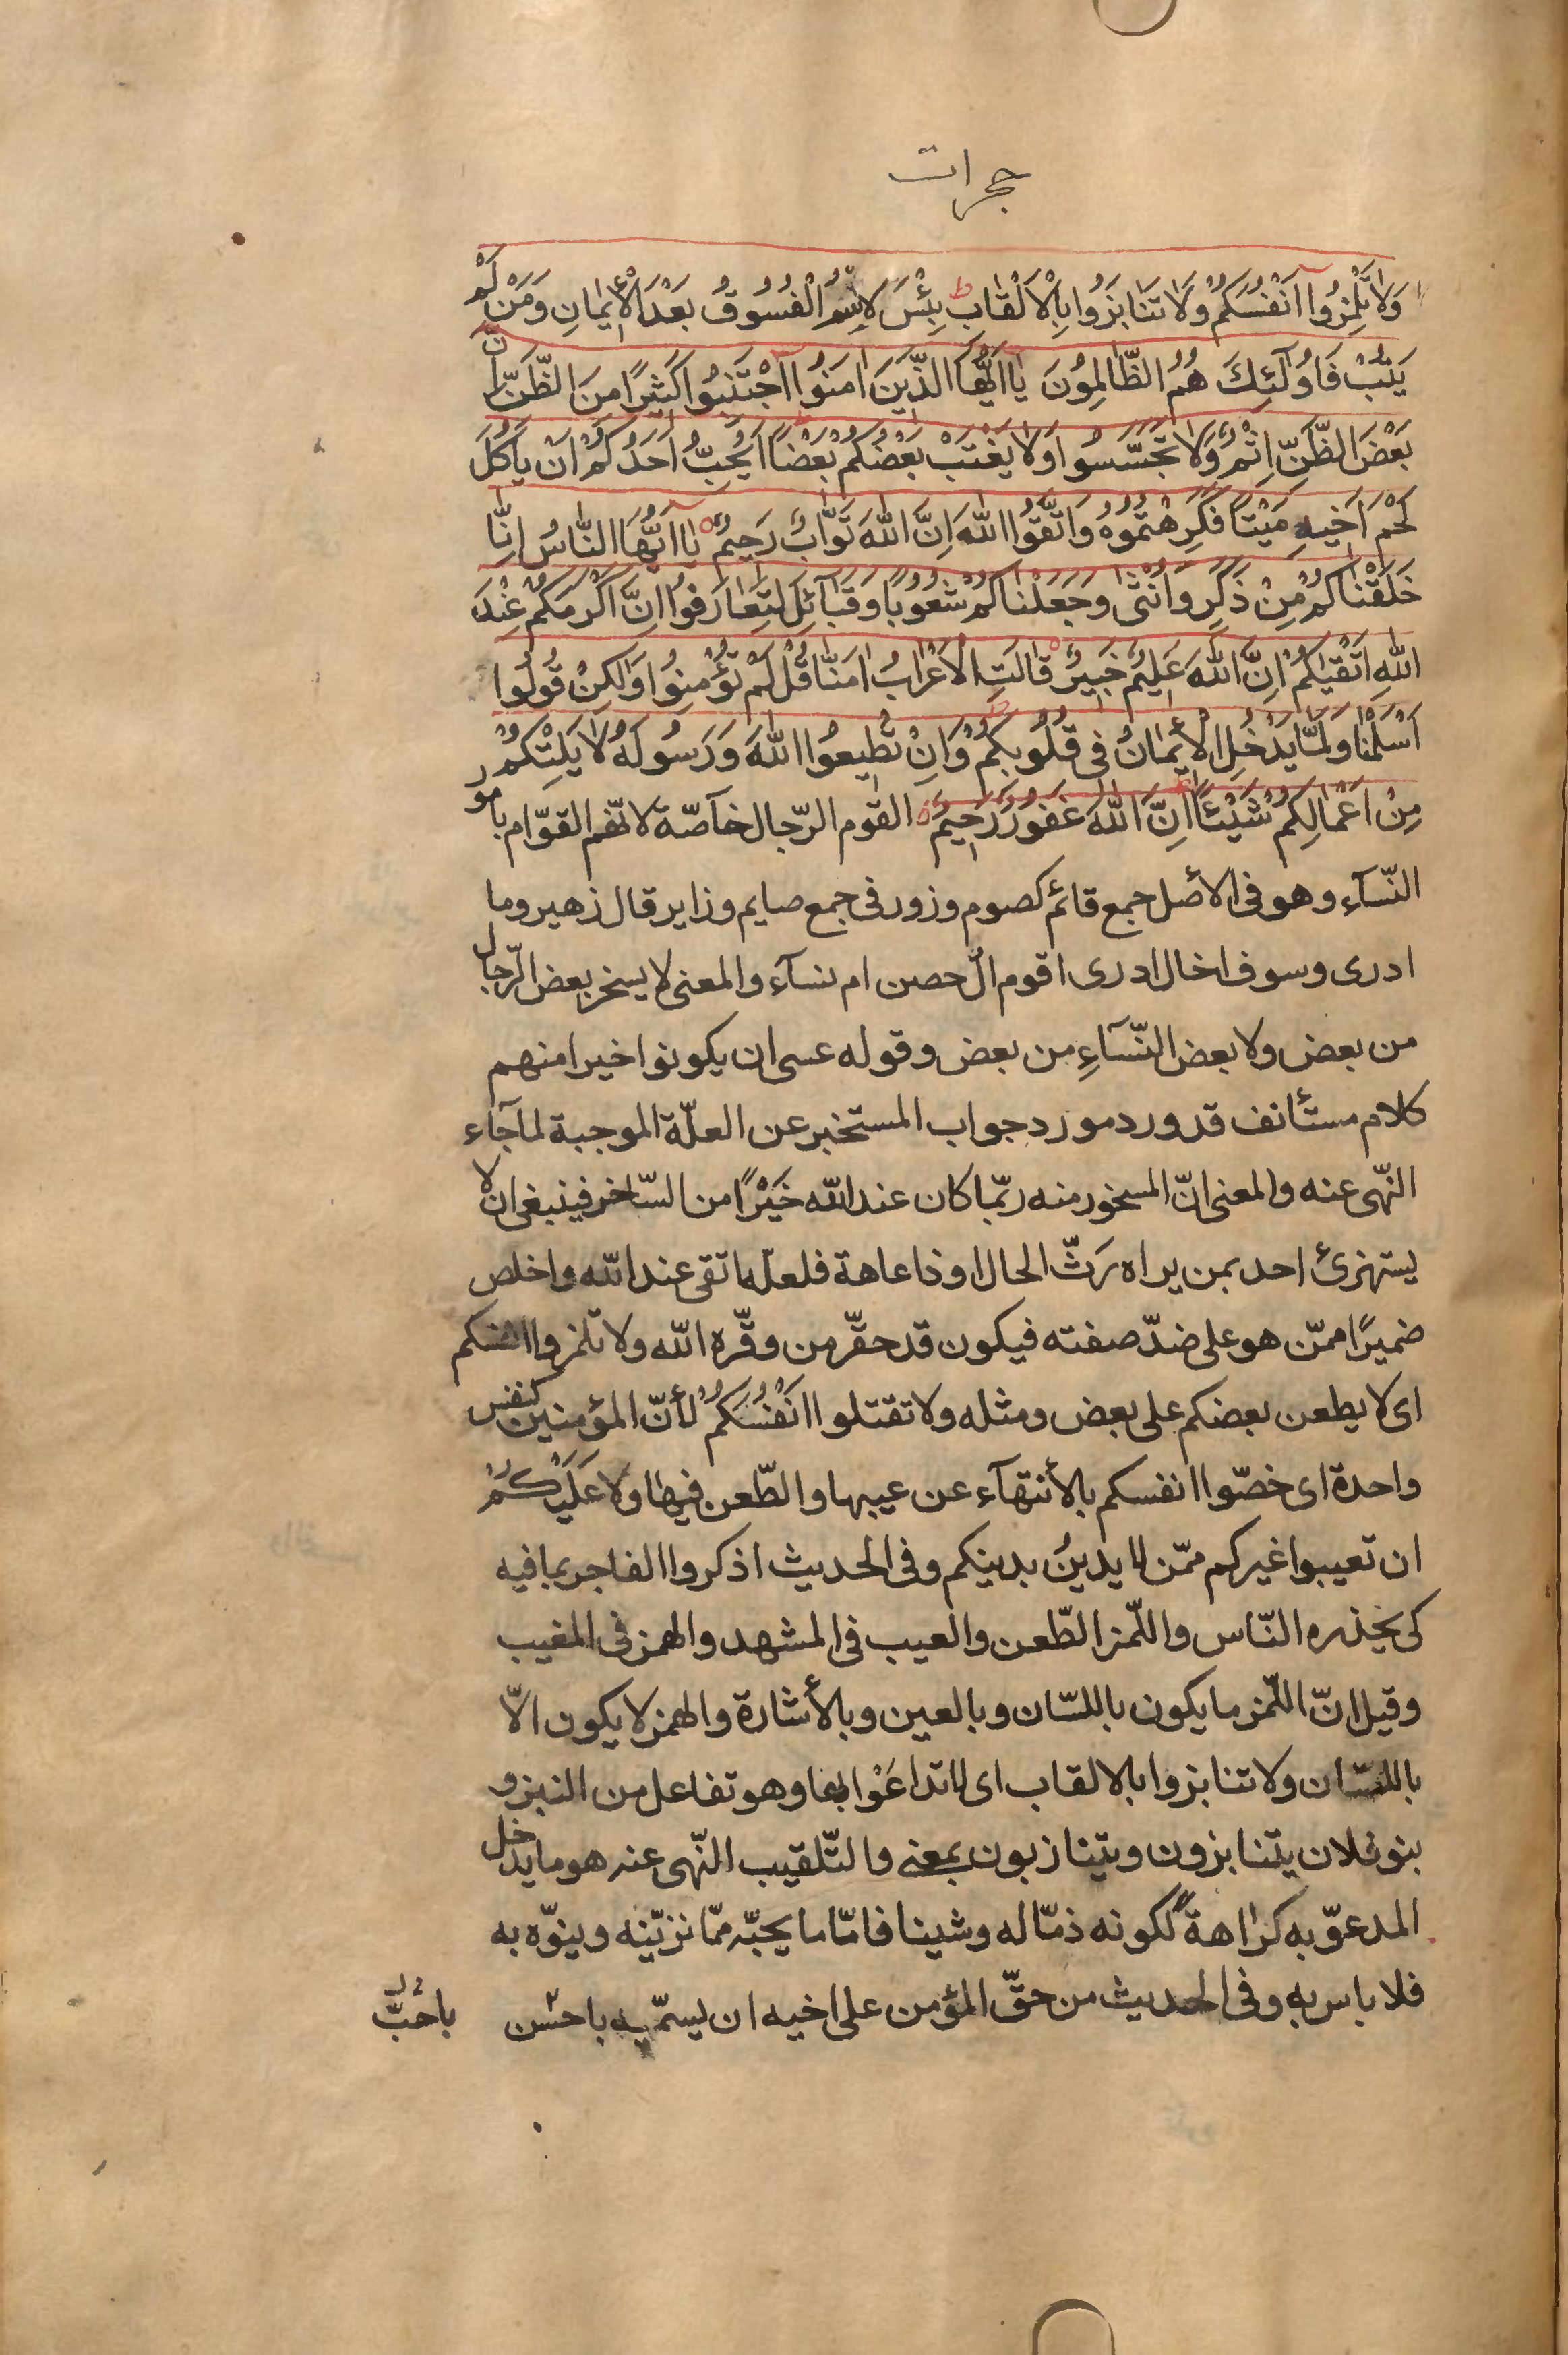 حجرات
وَلَا تَلْمِزُوا اَنْفُسَكُمْ وَلَا تَنَابَزُوا بِالْاَلْقَابِ ط بِئْسَ لِاسْمُ الْفُسُوقُ بَعْدَ الْاِیمَانِ وَمَنْ لَمْ
یَتُبْ فَاُولَئِكَ هُمُ الظَّالِمُونَ یَا اَیُّهَا الَّذِینَ اٰمَنُوا اجْتَنِبُوا كَثِیرًا مِنَ الظَّنِّ اِنَّ
بَعْضَ الظَّنِّ اِثْمٌ وَلَا تَجَسَّسُوا وَلَا یَغْتَبْ بَعْضُكُمْ بَعْضًا اَیُحِبُّ اَحَدُكُمْ اَنْ یَاْكُلَ
لَحْمَ اَخِیهِ مَیْتًا فَكَرِهْتُمُوهُ وَاتَّقُوا اللّٰهَ اِنَّ اللّٰهَ تَوَّابٌ رَحِیمٌ یَا اَیُّهَا النَّاسُ اِنَّا
خَلَقْنَاكُمْ مِنْ ذَكَرٍ وَاُنْثَى وَجَعَلْنَاكُمْ شُعُوبًا وَقَبَآئِلَ لِتَعَارَفُوا اِنَّ اَكْرَمَكُمْ عِنْدَ
اللّٰهِ اَتْقٰیكُمْ اِنَّ اللّٰهَ عَلِیمٌ خَبِیرٌ قَالَتِ الْاَعْرَابُ اٰمَنَّا قُلْ لَمْ تُؤْمِنُوا وَلٰكِنْ قُولُوا
اَسْلَمْنَا وَلَمَّا یَدْخُلِ الْاِیمَانُ فِی قُلُوبِكُمْ وَاِنْ تُطِیعُوا اللّٰهَ وَرَسُولَهُ لَا یَلِتْكُمْ
مِنْ اَعْمَالِكُمْ شَیْئًا اِنَّ اللّٰهَ غَفُورٌ رَحِیمٌ القوم الرّجال خآصّة لانّهم القوّام بامور
النّسآء وهو فی الأصل جمع قائم كصوم وزور فی جمع صایم وزایر قال زهیر وما
ادری وسوف اخال ادری اقوم الٓ حصن ام نسآء والمعنی لا یسخر بعض الرّجال
من بعض ولا بعض النّسآءِ من بعض وقوله عسی ان یكونوا خیرا منهم
كلام مستأنف قد ورد مورد جواب المستخبر عن العلّة الموجبة لما جآء
النّهی عنه والمعنی انّ المسخور منه ربّما كان عند اللّه خَیْرًا من السّاخر فینبغی ان لا
یستهزئ احد بمن یراه رَثّ الحال او ذا عاهة فلعلّه اتقی عند اللّه واخلص
ضمیرًا ممّن هو علی ضدّ صفته فیكون قد حقّر من وقّره اللّه ولا تلمزوا انفسكم
ای لا یطعن بعضكم علی بعض ومثله ولا تقتلوا اَنْفُسَكُمْ لأنّ المؤمنین كنفس
واحدة ای خصّوا انفسكم بالأنتهآء عن عیبها والطّعن فیها ولا عَلَیْكُمْ
ان تعیبوا غیركم ممّن لا یدینُ بدینكم وفی الحدیث اذكروا الفاجر بما فیه
كی یحذره النّاس واللّمز الطّعن والعیب فی المشهد والهمز فی المغیب
وقیل انّ اللّمز ما یكون باللسّان وبالعین وبالأشارة والهمز لا یكون الّا
باللسّان ولا تنابزوا بالالقاب ای لا تداعَوْا بها وهو تفاعل من النبز و
بنو فلان یتنابزون ویتنازبون بمعنی والتّلقیب النّهی عنه هو ما یدخل
المدعوّ به كراهةً لكونه ذمّا له وشینا فامّا ما یحبّه ممّا نزیّنه وینوّه به
فلا باس به وفی الحدیث من حقّ المؤمن علی اخیه ان یسمّیه باحسن
باحُبّ